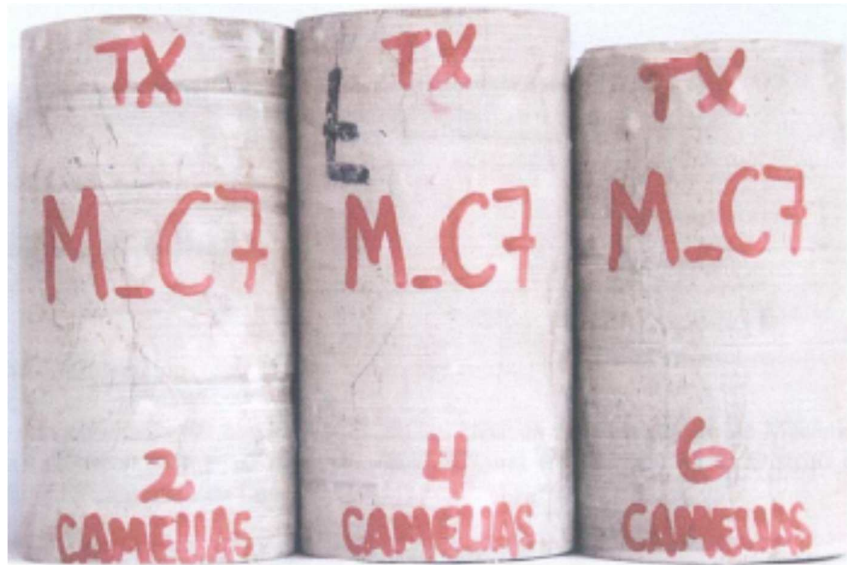 TX
M_C7
2
CAMELIAS
TX
E
M_C7
4
CAMELIAS
TX
M_C7
6
CAMELIAS